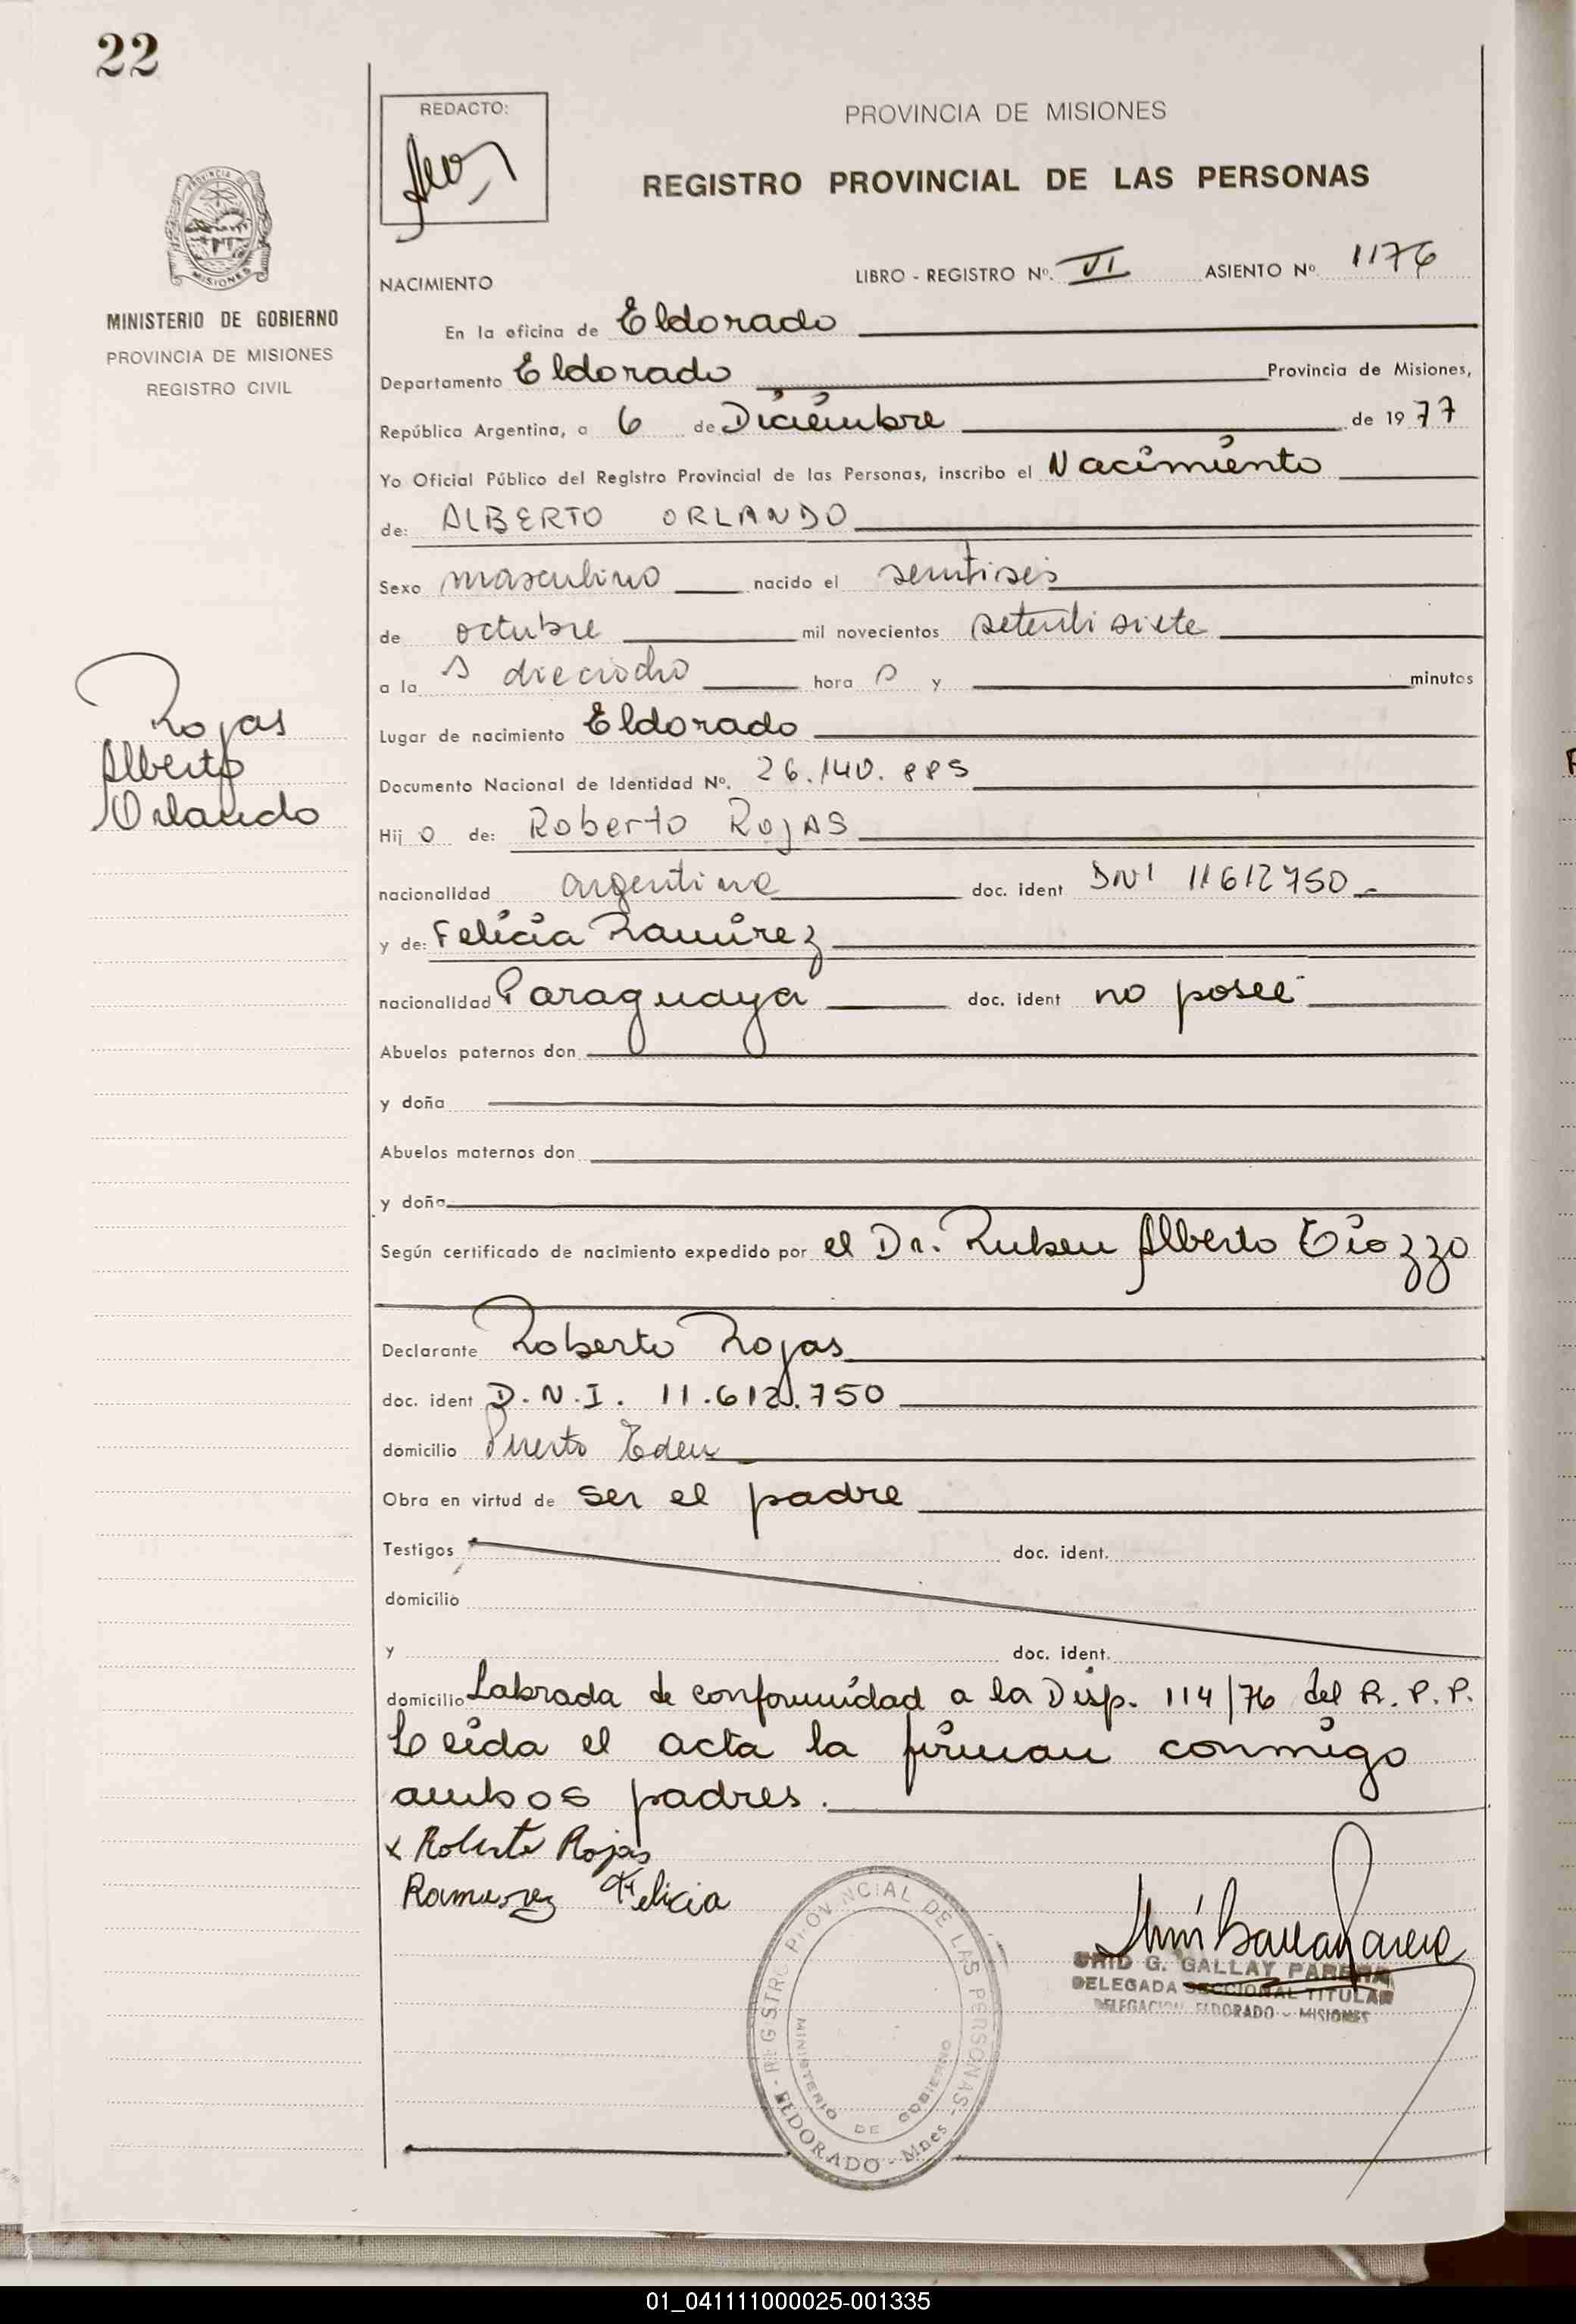 22
REDACTO:
PROVINCIA DE MISIONES
REGISTRO PROVINCIAL DE LAS PERSONAS
PROVINCIA DE
MISIONES
MINISTERIO DE GOBIERNO
PROVINCIA DE MISIONES
REGISTRO CIVIL
NACIMIENTO
LIBRO - REGISTRO Nº. VI ASIENTO Nº. 1176
En la oficina de Eldorado
Departamento Eldorado Provincia de Misiones,
República Argentina, a 6 de Diciembre de 1977
Yo Oficial Público del Registro Provincial de las Personas, inscribo el Nacimiento
de: ALBERTO ORLANDO
Sexo masculino nacido el
de octubre mil novecientos setentisiete
a la s dieciocho hora s y minutos
Rojas
Alberto
Orlando
Lugar de nacimiento Eldorado
Documento Nacional de Identidad Nº. 26.140.885
Hij o de: Roberto Rojas
nacionalidad argentina doc. ident DNI 11612750.-
y de: Felicia Ramirez
nacionalidad Paraguaya doc. ident no posee
Abuelos paternos don
y doña
Abuelos maternos don
y doña
Según certificado de nacimiento expedido por el Dr. Ruben Alberto Tiozzo
Declarante Roberto Rojas
doc. ident D.N.I. 11.612.750
domicilio Puerto Eden
Obra en virtud de ser el padre
Testigos doc. ident.
domicilio
y doc. ident.
domicilio Labrada de conformidad a la Disp. 114/76 del R.P.P.
Leida el acta la firman conmigo
ambos padres.
x Roberto Rojas
Ramirez Felicia
REGISTRO PROVINCIAL DE LAS PERSONAS
MINISTERIO DE GOBIERNO
ELDORADO - Mnes
G. GALLAY PARERA
DELEGADA SECCIONAL TITULAR
DELEGACION ELDORADO - MISIONES
01_041111000025-001335